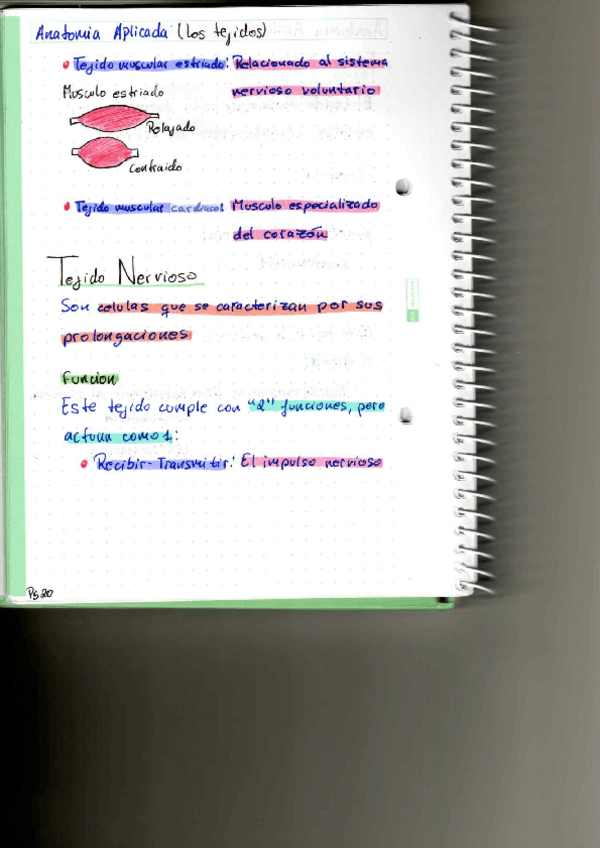 Anatomia Aplicada (Los tejidos)
• Tejido muscular estriado: Relacionado al sistema
nervioso voluntario
Musculo estriado
Relajado
Contraido
• Tejido muscular cardiaco: Musculo especializado
del corazón
Tejido Nervioso
Son celulas que se caracterizan por sus
prolongaciones
Funcion
Este tejido cumple con "2" funciones, pero
actuan como 1:
• Recibir-Transmitir: El impulso nervioso
Pg 20